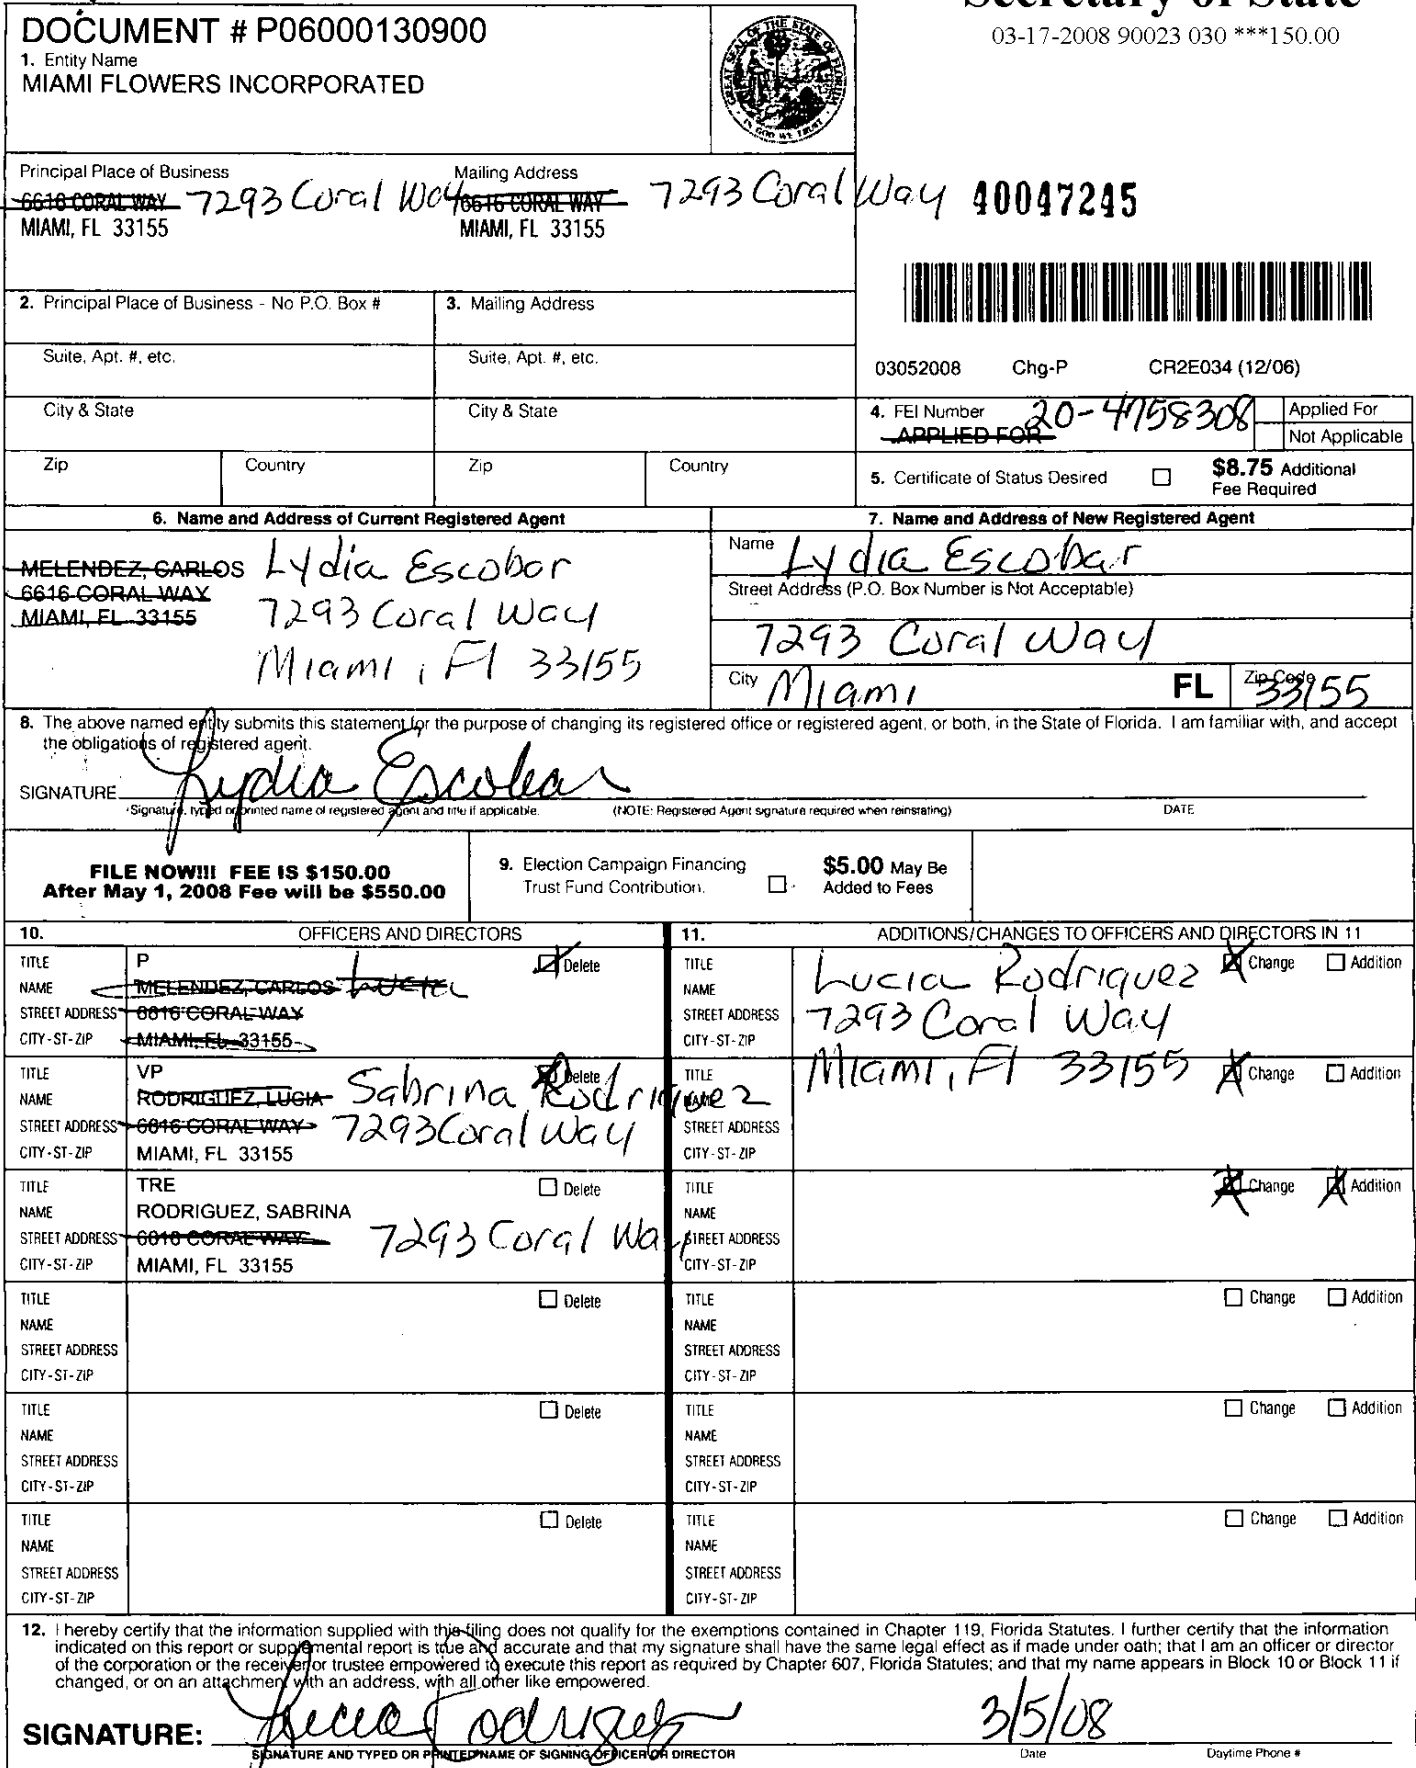 Secretary of State
03-17-2008 90023 030 ***150.00
DOCUMENT # P06000130900
1. Entity Name
MIAMI FLOWERS INCORPORATED
GREAT SEAL OF THE STATE OF FLORIDA
IN GOD WE TRUST
Principal Place of Business
6616 CORAL WAY 7293 Coral Way
MIAMI, FL 33155
Mailing Address
6616 CORAL WAY 7293 Coral Way
MIAMI, FL 33155
40047245
2. Principal Place of Business - No P.O. Box #
3. Mailing Address
Suite, Apt. #, etc.
Suite, Apt. #, etc.
03052008 Chg-P CR2E034 (12/06)
City & State
City & State
4. FEI Number 20-4758308
APPLIED FOR
Applied For
Not Applicable
Zip Country
Zip Country
5. Certificate of Status Desired
$8.75 Additional
Fee Required
6. Name and Address of Current Registered Agent
MELENDEZ, CARLOS
6616 CORAL WAY
MIAMI, FL 33155
Lydia Escobar
7293 Coral Way
Miami, Fl 33155
7. Name and Address of New Registered Agent
Name Lydia Escobar
Street Address (P.O. Box Number is Not Acceptable)
7293 Coral Way
City Miami FL Zip Code 33155
8. The above named entity submits this statement for the purpose of changing its registered office or registered agent, or both, in the State of Florida. I am familiar with, and accept
the obligations of registered agent.
SIGNATURE Lydia Escobar
Signature, typed or printed name of registered agent and title if applicable. (NOTE: Registered Agent signature required when reinstating) DATE
FILE NOW!!! FEE IS $150.00
After May 1, 2008 Fee will be $550.00
9. Election Campaign Financing
Trust Fund Contribution.
$5.00 May Be
Added to Fees
10. OFFICERS AND DIRECTORS
TITLE P Delete
NAME MELENDEZ, CARLOS Lucia
STREET ADDRESS 6616 CORAL WAY
CITY-ST-ZIP MIAMI, FL 33155
TITLE VP Delete
NAME RODRIGUEZ, LUCIA Sabrina Rodriguez
STREET ADDRESS 6616 CORAL WAY 7293 Coral Way
CITY-ST-ZIP MIAMI, FL 33155
TITLE TRE Delete
NAME RODRIGUEZ, SABRINA
STREET ADDRESS 6616 CORAL WAY 7293 Coral Way
CITY-ST-ZIP MIAMI, FL 33155
TITLE Delete
NAME
STREET ADDRESS
CITY-ST-ZIP
TITLE Delete
NAME
STREET ADDRESS
CITY-ST-ZIP
TITLE Delete
NAME
STREET ADDRESS
CITY-ST-ZIP
11. ADDITIONS/CHANGES TO OFFICERS AND DIRECTORS IN 11
TITLE Change Addition
NAME Lucia Rodriguez
STREET ADDRESS 7293 Coral Way
CITY-ST-ZIP Miami, Fl 33155
TITLE Change Addition
NAME
STREET ADDRESS
CITY-ST-ZIP
TITLE Change Addition
NAME
STREET ADDRESS
CITY-ST-ZIP
TITLE Change Addition
NAME
STREET ADDRESS
CITY-ST-ZIP
TITLE Change Addition
NAME
STREET ADDRESS
CITY-ST-ZIP
TITLE Change Addition
NAME
STREET ADDRESS
CITY-ST-ZIP
12. I hereby certify that the information supplied with this filing does not qualify for the exemptions contained in Chapter 119, Florida Statutes. I further certify that the information
indicated on this report or supplemental report is true and accurate and that my signature shall have the same legal effect as if made under oath; that I am an officer or director
of the corporation or the receiver or trustee empowered to execute this report as required by Chapter 607, Florida Statutes; and that my name appears in Block 10 or Block 11 if
changed, or on an attachment with an address, with all other like empowered.
SIGNATURE: Lucia Rodriguez 3/5/08
SIGNATURE AND TYPED OR PRINTED NAME OF SIGNING OFFICER OR DIRECTOR Date Daytime Phone #